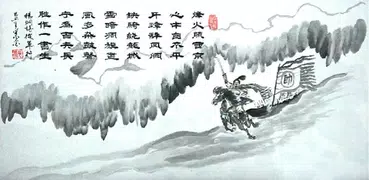 烽火照西京
心中自不平
牙璋辭鳳闕
鐵騎繞龍城
雪暗凋旗畫
風多雜鼓聲
寧為百夫長
勝作一書生
楊炯從軍行
帥